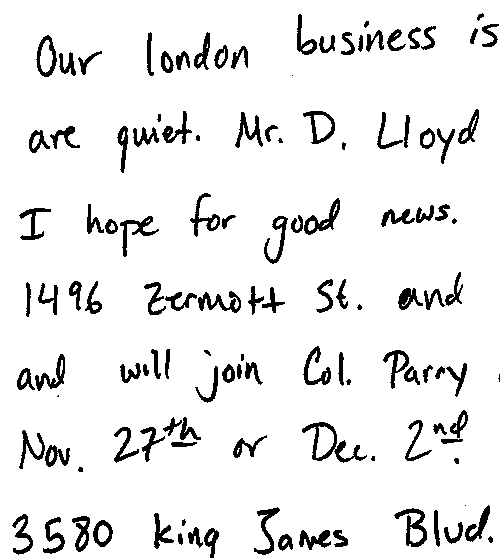 Our london business is
are quiet. Mr. D. Lloyd
I hope for good news.
1496 Zermott St. and
and will join Col. Parry
Nov. 27th or Dec. 2nd.
3580 king James Blvd.